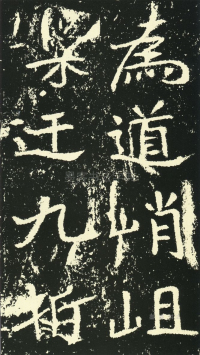 為道峭岨
槃迂九折